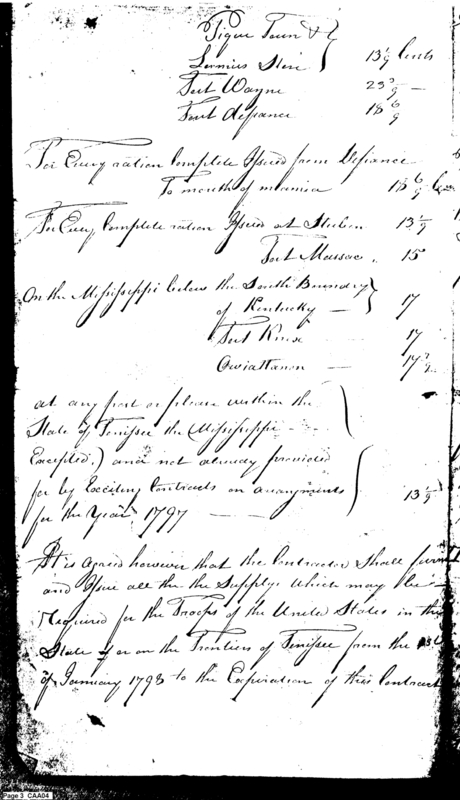 Pique Town &
Loramies Store } 13 1/9 Cents
Fort Wayne 23 —
Fort defiance 18 6/9
For Every ration Complete Issued from Defiance
To mouth of miamia 18 6/9
For Every Complete ration Issued at Stuben 13 1/9
Fort Massac. 15
On the Mississippi below the South Boundry
of Kentucky — } 17
Fort Knox 17
Owiattanon — 17
at any post or please within the
State of Tenissee the (Mississippi
Excepted.) and not already provided
for by Exciting Contracts or arrangments
for the Year 1797 — — } 13 1/9
It is agreed however that the Contractor Shall
and Issue all the the Supplys which may be
Required for the Troops of the United States in the
State of or on the Frontiers of Tenissee from the 1st
of January 1798 to the Expiration of this Contract
Page 3 CAA04